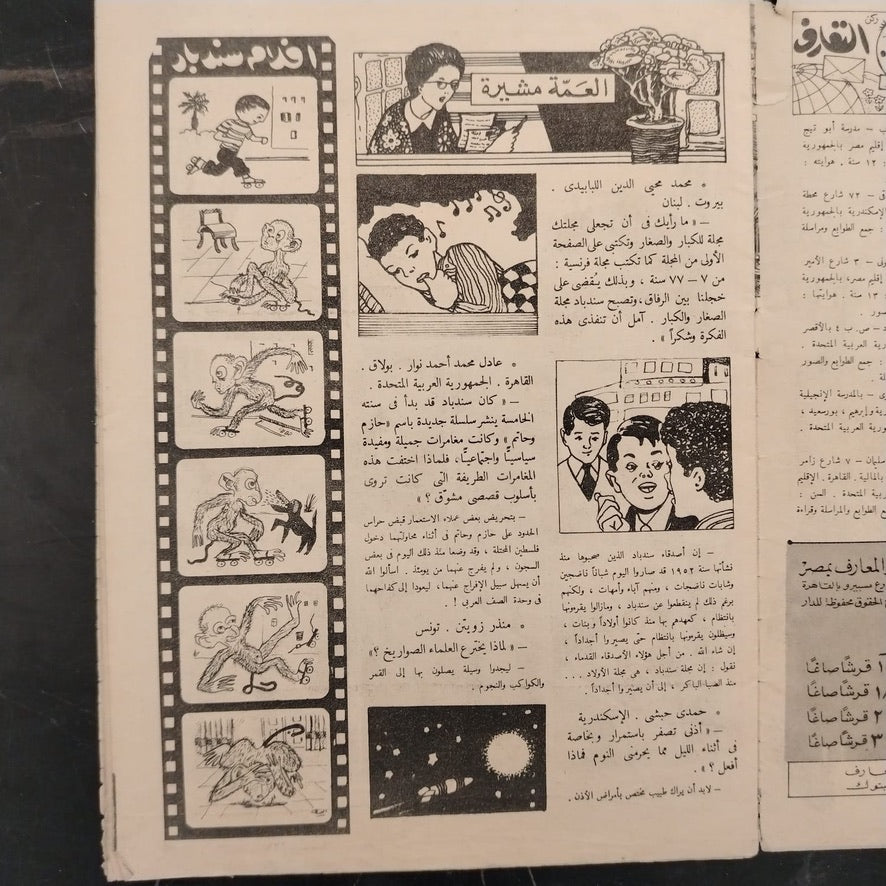 العمّة مشيرة
محمد محيي الدين اللبابيدى .
بيروت . لبنان
— « ما رأيك فى أن تجعلى مجلتك
مجلة للكبار والصغار وتكتبى على الصفحة
الأولى من المجلة كما تكتب مجلة فرنسية :
من ٧ – ٧٧ سنة ، وبذلك يُقضى على
خجلنا بين الرفاق، وتصبح سندباد مجلة
الصغار والكبار . آمل أن تنفذى هذه
الفكرة وشكراً » .
— إن أصدقاء سندباد الذين صحبوها منذ
نشأتها سنة ١٩٥٢ قد صاروا اليوم شباناً ناضجين
وشابات ناضجات ، ومنهم آباء وأمهات ، ولكنهم
برغم ذلك لم ينقطعوا عن سندباد ، ومازالوا يقرءونها
بانتظام ، كعهدهم بها منذ كانوا أولاداً وبنات ،
وسيظلون يقرءونها بانتظام حتى يصبروا أجداداً ،
إن شاء الله . من أجل هؤلاء الأصدقاء القدماء ،
نقول : إن مجلة سندباد ، هى مجلة الأولاد . . . .
منذ الصبا الباكر ، إلى أن يصيروا أجداداً .
حمدى حبشى . الإسكندرية
— « أذنى تصفر باستمرار وبخاصة
فى أثناء الليل مما يحرمنى النوم فماذا
أفعل ؟ » .
— لابد أن يراك طبيب مختص بأمراض الأذن .
عادل محمد أحمد نوار . بولاق .
القاهرة . الجمهورية العربية المتحدة .
— « كان سندباد قد بدأ فى سنته
الخامسة ينشر سلسلة جديدة باسم « حازم
وحاتم » وكانت مغامرات جميلة ومفيدة
سياسيًّا واجتماعيًّا، فلماذا اختفت هذه
المغامرات الطريفة التى كانت تروى
بأسلوب قصصى مشوّق ؟ »
— بتحريض بعض عملاء الاستعمار قبض حراس
الحدود على حازم وحاتم فى أثناء محاولتهما دخول
فلسطين المحتلة ، وقد وضعا منذ ذلك اليوم فى بعض
السجون ، ولم يفرج عنهما من يومئذ . اسألوا الله
أن يسهل سبيل الإفراج عنهما، ليعودا إلى كفاحهما
فى وحدة الصف العربى ! .
منذر زويتن . تونس
— « لماذا يخترع العلماء الصواريخ ؟ »
— ليجدوا وسيلة يصلون بها إلى القمر
والكواكب والنجوم .
افلام سندباد
التعارف
— مدرسة أبو تيج
إقليم مصر بالجمهورية
١٢ سنة . هوايته :
— ٧٢ شارع محطة
الإسكندرية بالجمهورية
: جمع الطوابع ومراسلة
— ٣ شارع الأمير
إقليم مصر، بالجمهورية
١٣ سنة . هوايتها :
— ص. ب ٤ بالأقصر
العربية المتحدة .
: جمع الطوابع والصور
— بالمدرسة الإنجيلية
وإبرهيم ، بورسعيد ،
العربية المتحدة .
سليمان – ٧ شارع زامر
بالمالية . القاهرة . الإقليم
العربية المتحدة . السن :
الطوابع والمراسلة وقراءة
المعارف بمصر
مسبيرو بالقاهرة
الحقوق محفوظة للدار
قرشًا صاغًا
قرشًا صاغًا
قرشًا صاغًا
قرشًا صاغًا